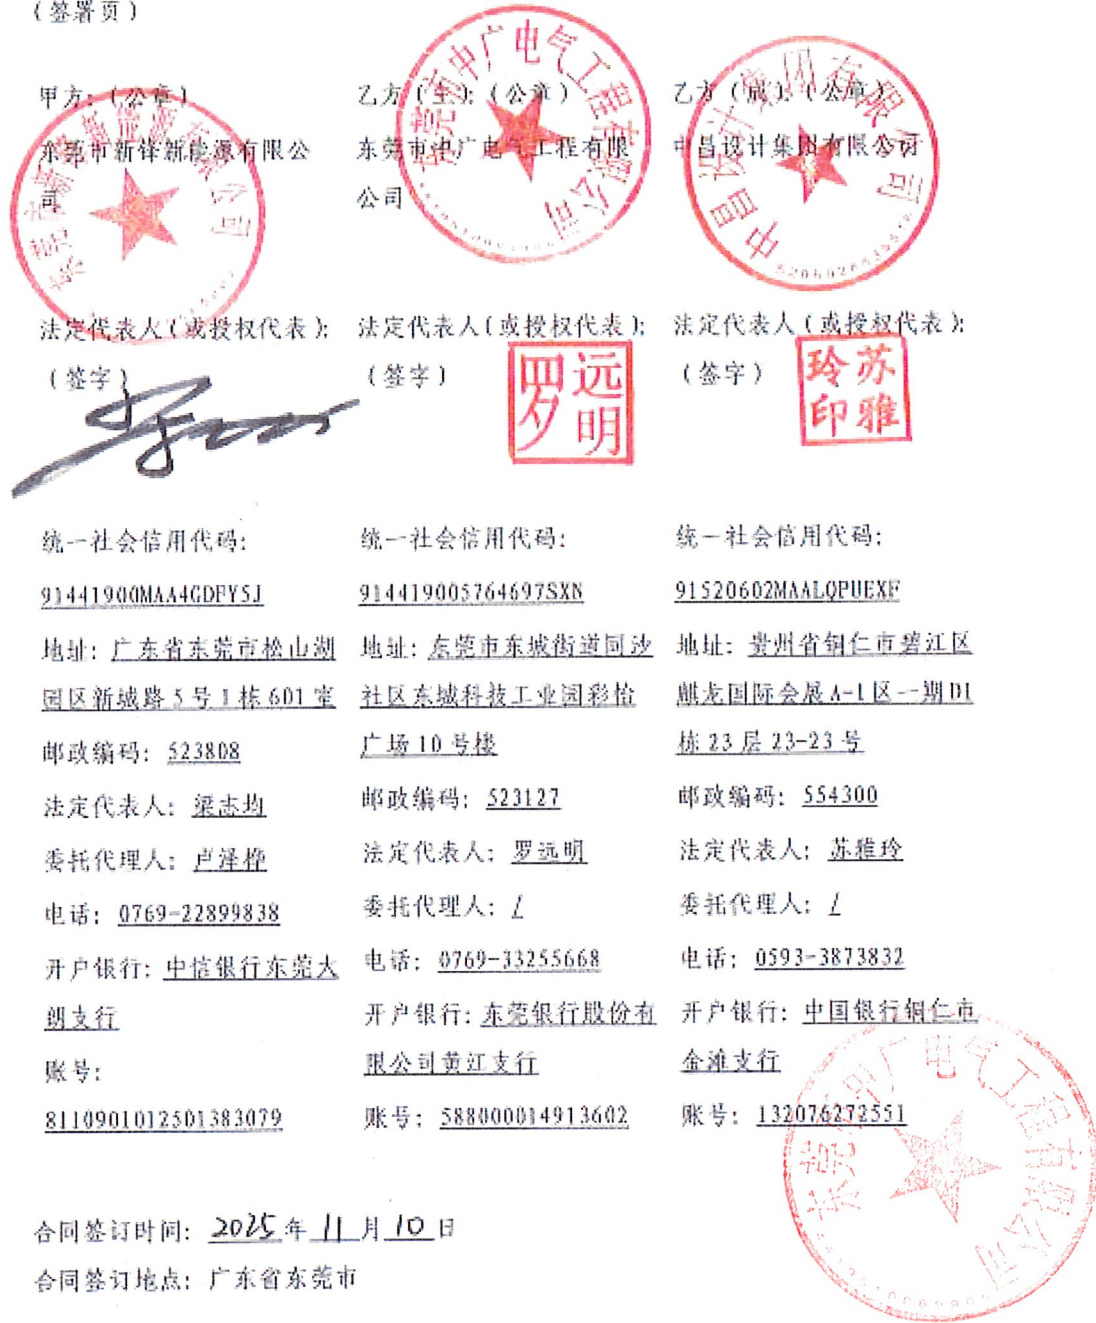 （签署页）
甲方：（公章）
东莞市新锋新能源有限公
司
法定代表人（或授权代表）：
（签字）
统一社会信用代码：
91441900MAA4GDFY5J
地址：广东省东莞市松山湖
园区新城路5号1栋601室
邮政编码：523808
法定代表人：梁志均
委托代理人：卢泽桦
电话：0769-22899838
开户银行：中信银行东莞大
朗支行
账号：
8110901012501383079
乙方（主）：（公章）
东莞市中广电气工程有限
公司
法定代表人（或授权代表）：
（签字）
罗远明
统一社会信用代码：
914419005764697SXN
地址：东莞市东城街道同沙
社区东城科技工业园彩怡
广场10号楼
邮政编码：523127
法定代表人：罗远明
委托代理人：/
电话：0769-33255668
开户银行：东莞银行股份有
限公司黄江支行
账号：588000014913602
乙方（成）：（公章）
中昌设计集团有限公司
法定代表人（或授权代表）：
（签字）
苏雅玲印
统一社会信用代码：
91520602MAALQPUEXF
地址：贵州省铜仁市碧江区
麒龙国际会展A-1区一期D1
栋23层23-23号
邮政编码：554300
法定代表人：苏雅玲
委托代理人：/
电话：0593-3873832
开户银行：中国银行铜仁市
金滩支行
账号：132076272551
东莞市中广电气工程有限公司
中昌设计集团有限公司
东莞市中广电气工程有限公司
合同签订时间：2025年11月10日
合同签订地点：广东省东莞市